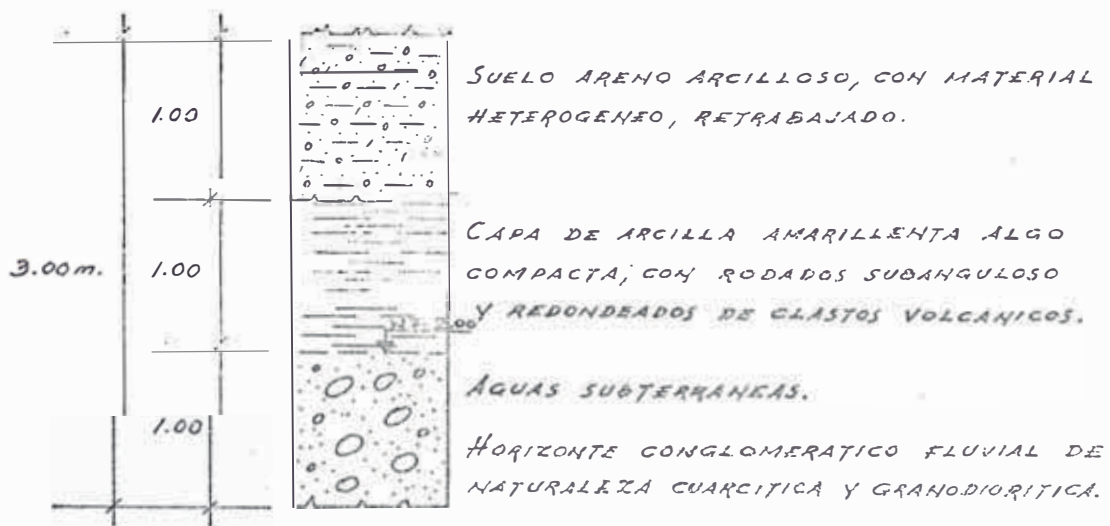 SUELO ARENO ARCILLOSO, CON MATERIAL
HETEROGENEO, RETRABAJADO.
1.00
CAPA DE ARCILLA AMARILLENTA ALGO
COMPACTA, CON RODADOS SUBANGULOSO
Y REDONDEADOS DE CLASTOS VOLCANICOS.
3.00m.
1.00
2.00
AGUAS SUBTERRANEAS.
1.00
HORIZONTE CONGLOMERATICO FLUVIAL DE
NATURALEZA CUARCITICA Y GRANODIORITICA.